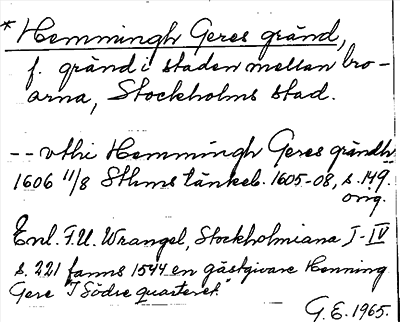 * Hemmingh Geres gränd,
f. gränd i staden mellan bro-
arna, Stockholms stad.
-- vthi Hemmingh Geres grändh
1606 11/8 Sthms tänkeb. 1605-08, s. 149.
orig.
Enl. F.U. Wrangel, Stockholmiana I-IV
s. 221 fanns 1544 en gästgivare Henning
Gere "I Södre quarteret."
G.E. 1965.